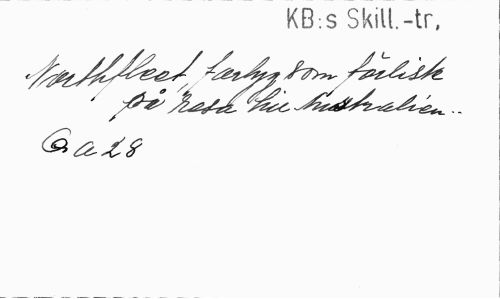 KB:s Skill.-tr,
Northfleet, farhyg som förlisk
på resa hie Australien..
Q a 28